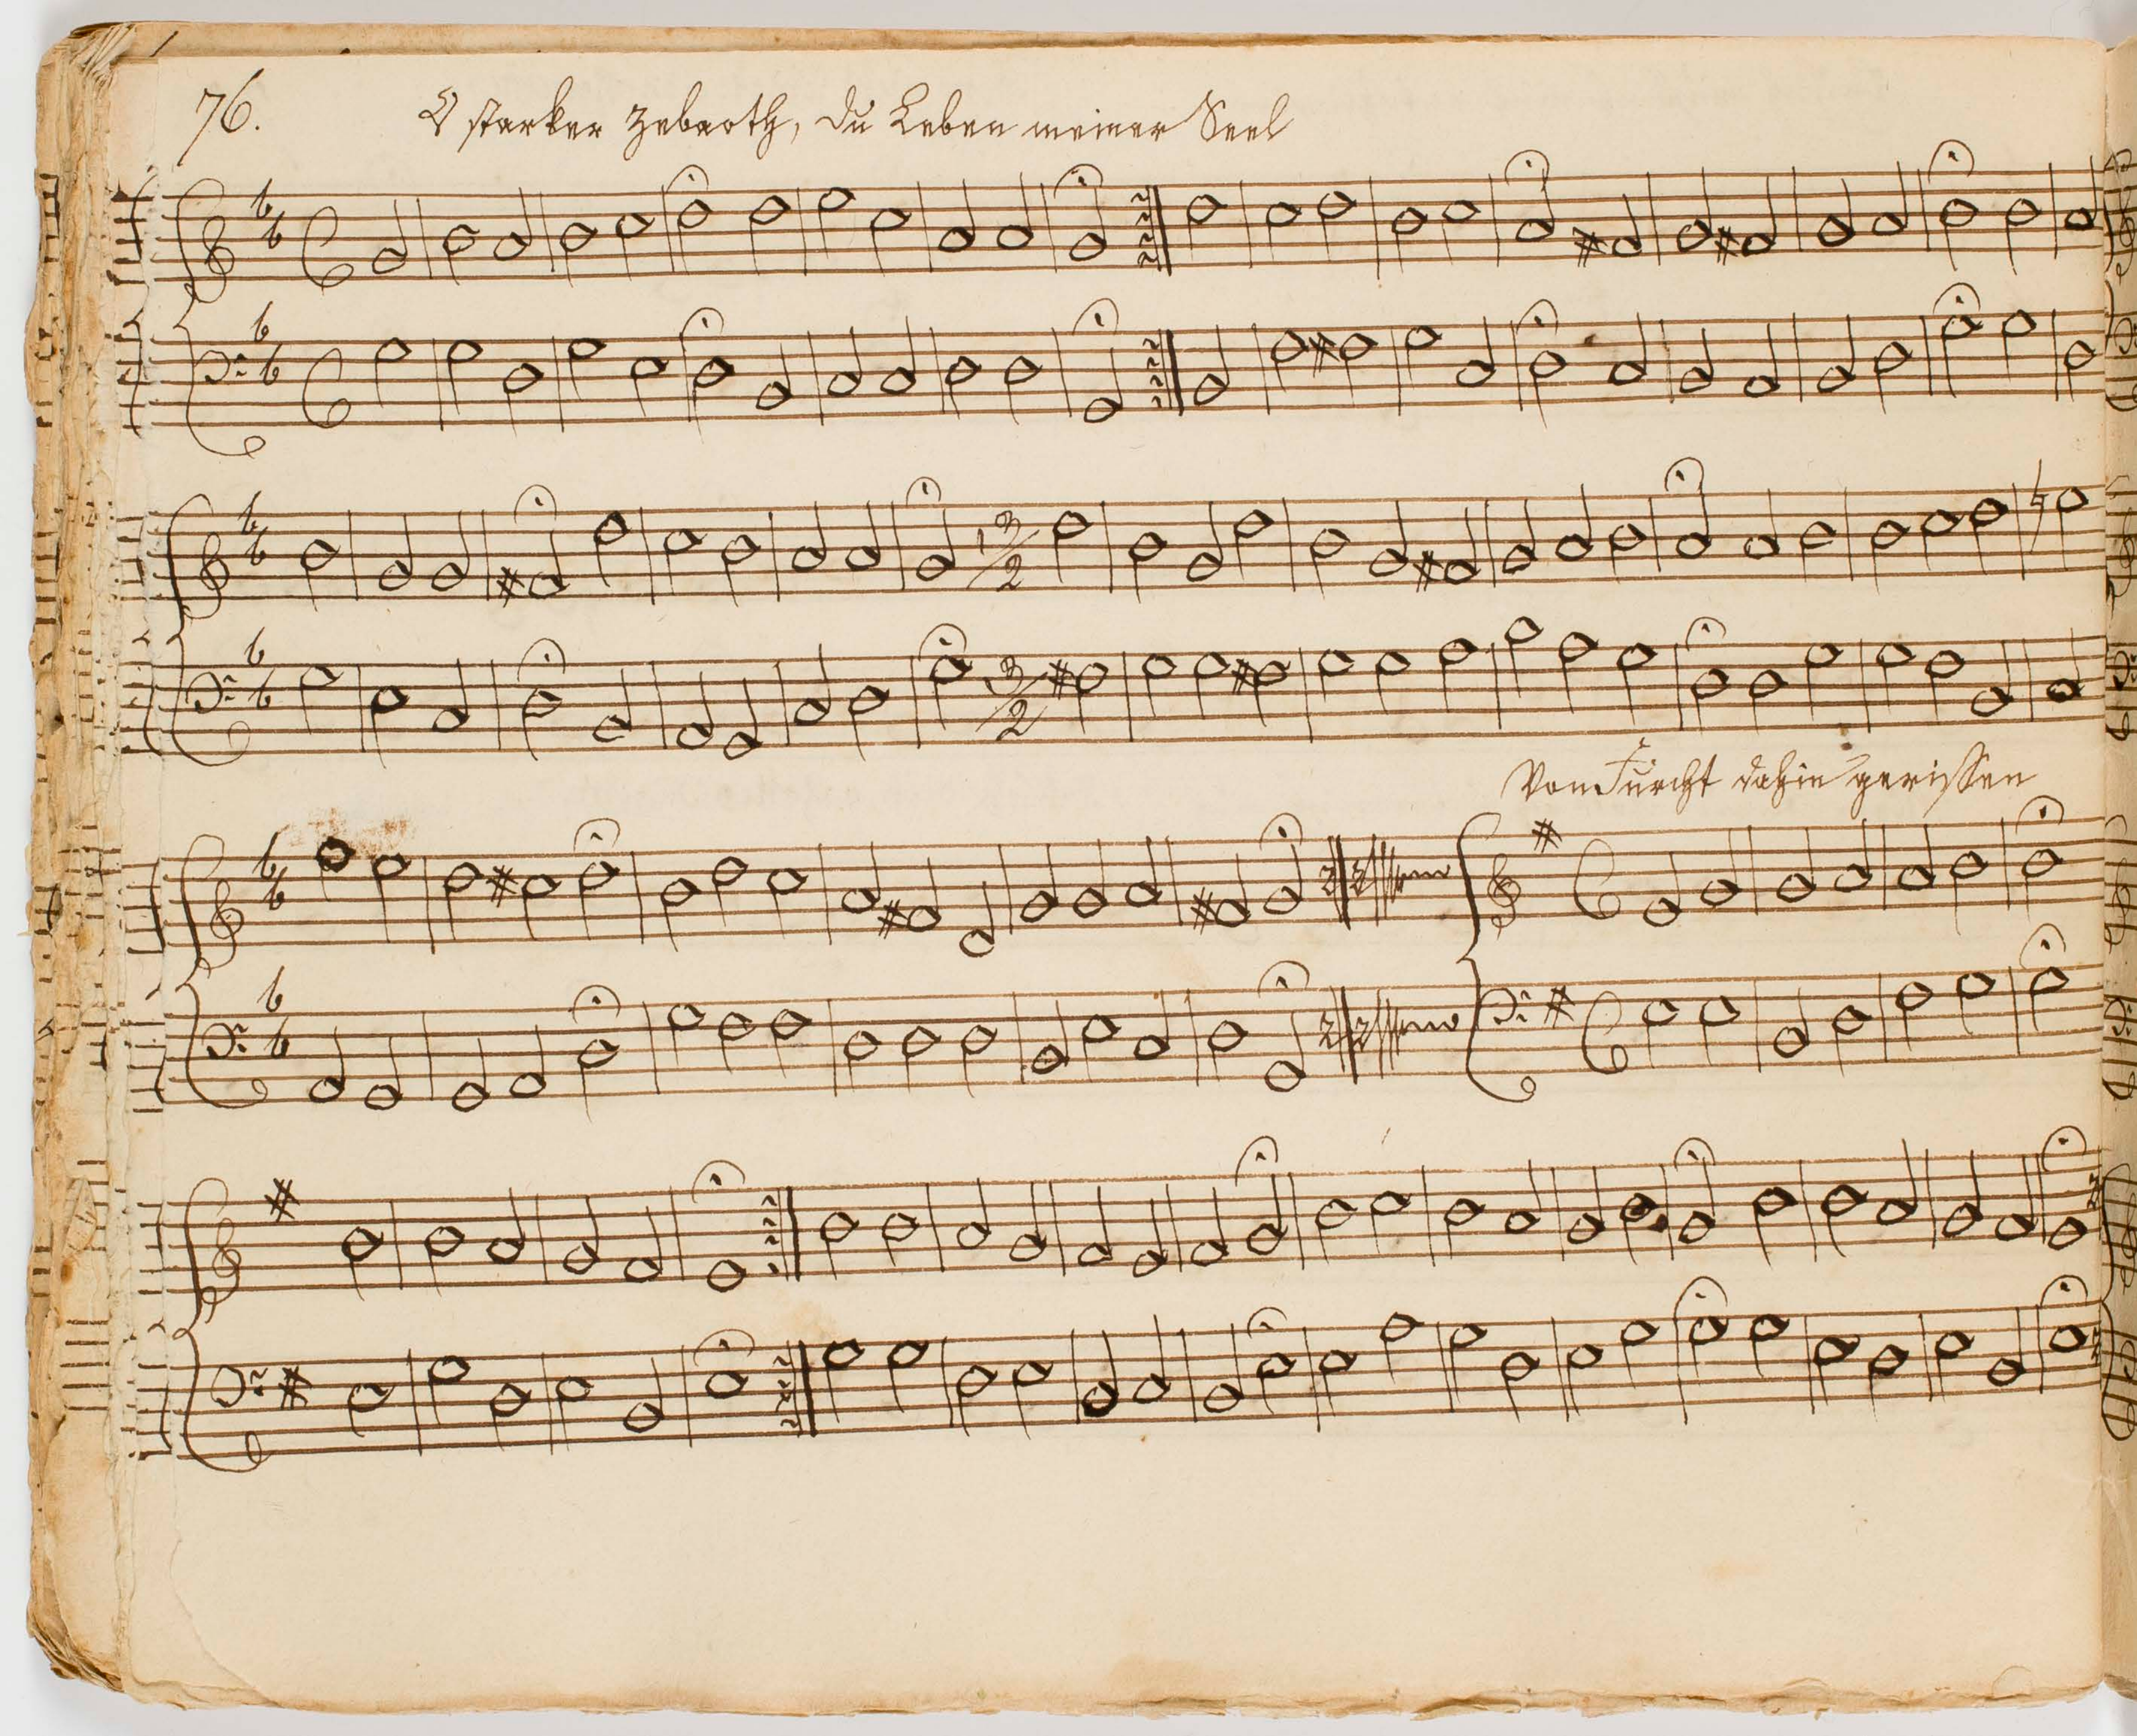 76.
O starker Zebaoth, du Leben meiner Seel
3
2
3
2
Von Furcht dahin gerissen